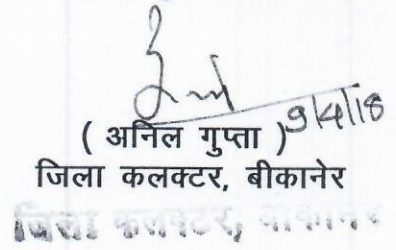 9/4/18
( अनिल गुप्ता )
जिला कलक्टर, बीकानेर
जिला कलक्टर, बीकानेर